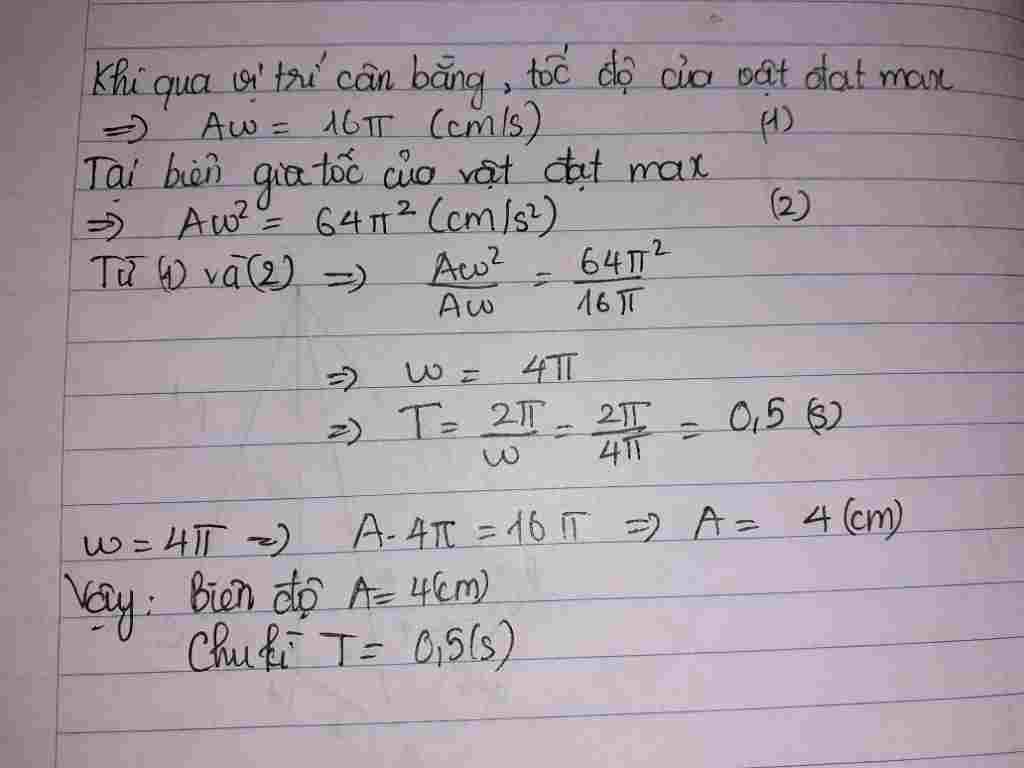 Khi qua vị trí cân bằng, tốc độ của vật đạt max
=> Aω = 16π (cm/s) (1)
Tại biên gia tốc của vật đạt max
=> Aω² = 64π² (cm/s²) (2)
Từ (1) và (2) => Aω²/Aω = 64π²/16π
=> ω = 4π
=> T = 2π/ω = 2π/4π = 0,5 (s)
ω = 4π => A. 4π = 16π => A = 4 (cm)
Vậy: Biên độ A = 4(cm)
Chu kì T = 0,5(s)